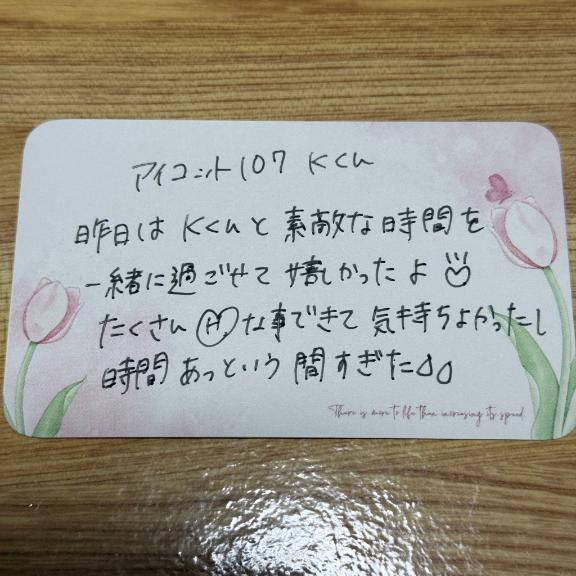 アイコット107 Kくん
昨日は Kくんと 素敵な時間を
一緒に過ごせて 嬉しかったよ
たくさん Hな事できて 気持ちよかったし
時間 あっという間すぎた
There is more to life than increasing its speed.